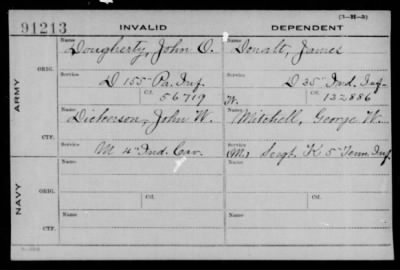 (3-H-3)
91213 INVALID DEPENDENT
Name Name
Dougherty, John O. Donalt, James
ORIG.
Service Service
D 155" Pa. Inf. D 35" Ind. Inf.
Ctf. Ctf.
56719 W. 132886
ARMY
Name Name
Dickerson, John W. Mitchell, George W.
CTF.
Service Service
M 4" Ind. Cav. (M.) Sergt. K 5" Tenn. Inf.
Ctf. Ctf.
ORIG.
NAVY
Name Name
CTF.